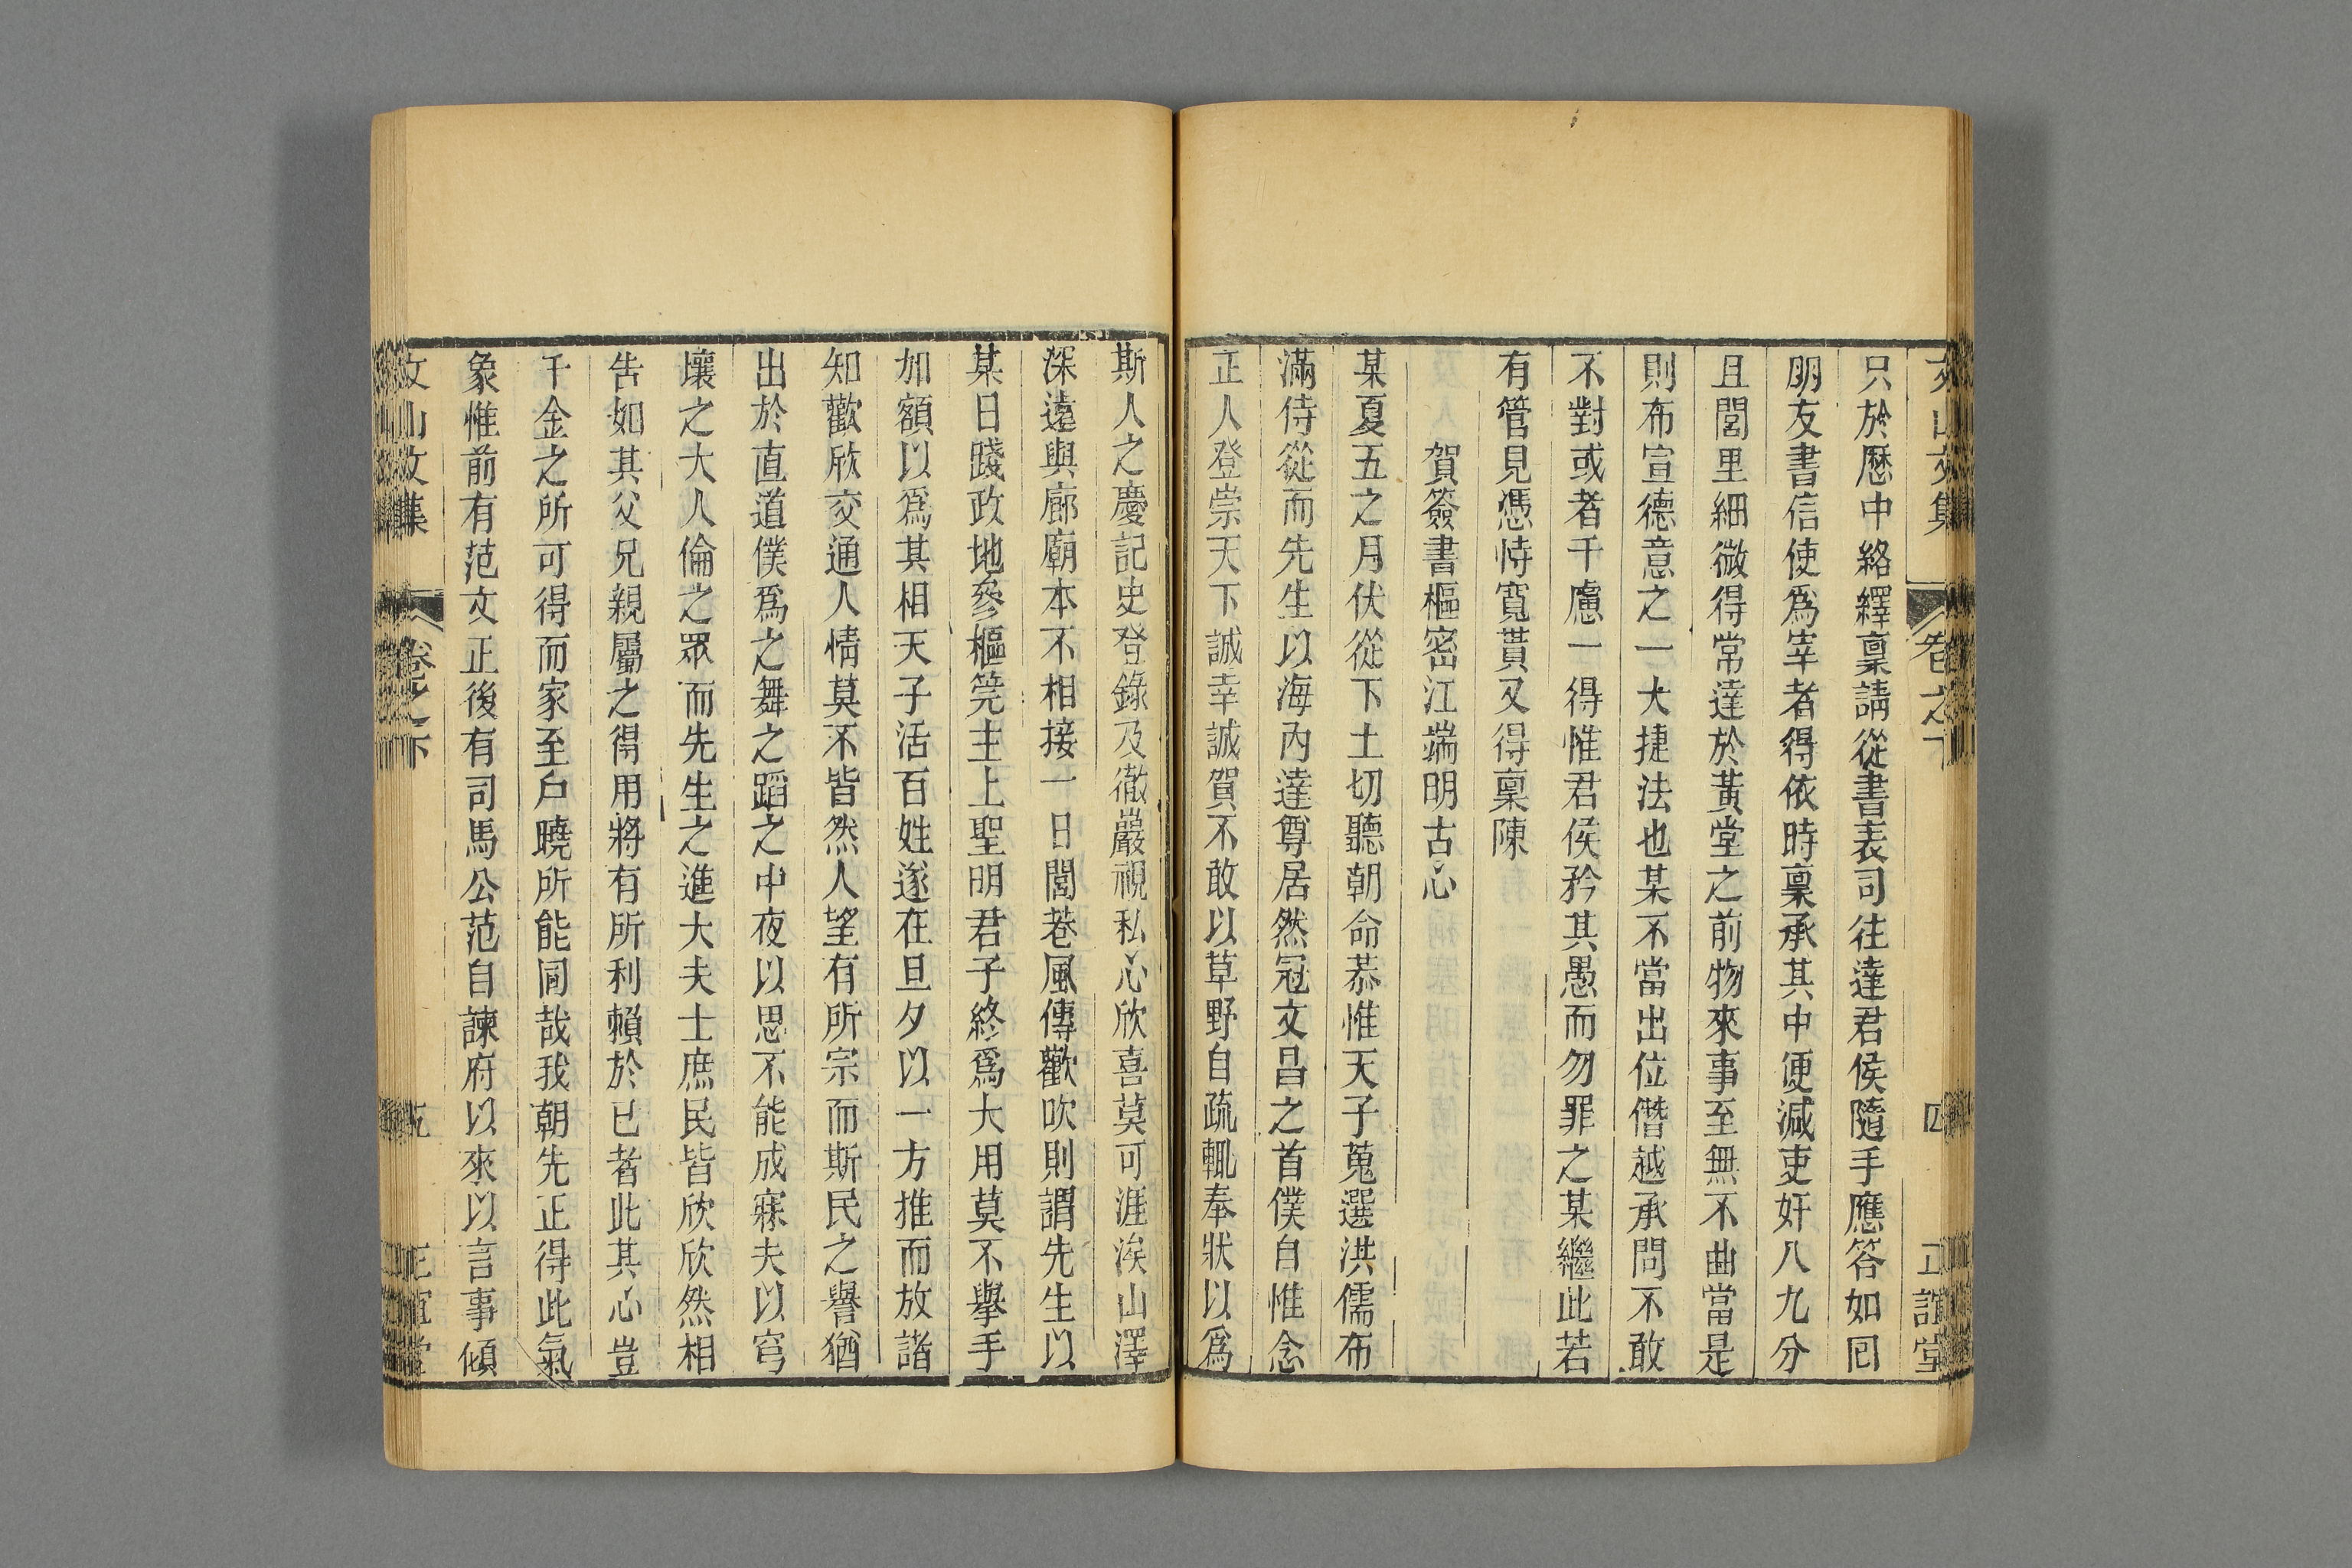 文山文集 卷之下 四 正誼堂
只於歷中絡繹稟請從書表司往達君侯隨手應答如囘
朋友書信使爲宰者得依時稟承其中便減吏奸八九分
且閭里細微得常達於黃堂之前物來事至無不曲當是
則布宣德意之一大捷法也某不當出位僭越承問不敢
不對或者千慮一得惟君侯矜其愚而勿罪之某繼此若
有管見憑恃寬貰又得稟陳
賀簽書樞密江端明古心
某夏五之月伏從下土切聽朝命恭惟天子蒐選洪儒布
滿侍從而先生以海內達尊居然冠文昌之首僕自惟念
正人登崇天下誠幸誠賀不敢以草野自疏輒奉狀以爲
斯人之慶記史登錄及徹嚴視私心欣喜莫可涯涘山澤
深遠與廊廟本不相接一日閭巷風傳歡吹則謂先生以
某日踐政地參樞筦主上聖明君子終爲大用莫不舉手
加額以爲其相天子活百姓遂在旦夕以一方推而放諸
知歡欣交通人情莫不皆然人望有所宗而斯民之譽猶
出於直道僕爲之舞之蹈之中夜以思不能成寐夫以穹
壤之大人倫之眾而先生之進大夫士庶民皆欣欣然相
告如其父兄親屬之得用將有所利賴於已者此其心豈
千金之所可得而家至戶曉所能同哉我朝先正得此氣
象惟前有范文正後有司馬公范自諫府以來以言事傾
文山文集 卷之下 五 正誼堂